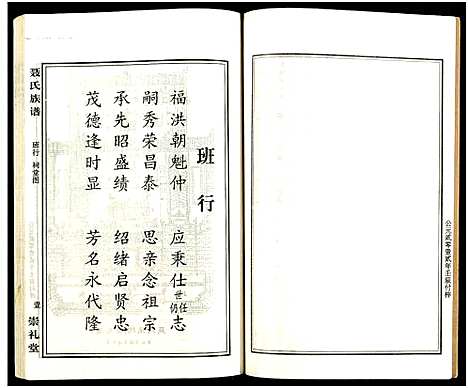 公元贰零壹贰年壬辰付梓
班行
福洪朝魁仲 应秉仕世仍任志
嗣秀荣昌泰 思亲念祖宗
承先昭盛绩 绍绪启贤忠
茂德逢时显 芳名永代隆
聂氏族谱
班行 祠堂图
崇礼堂